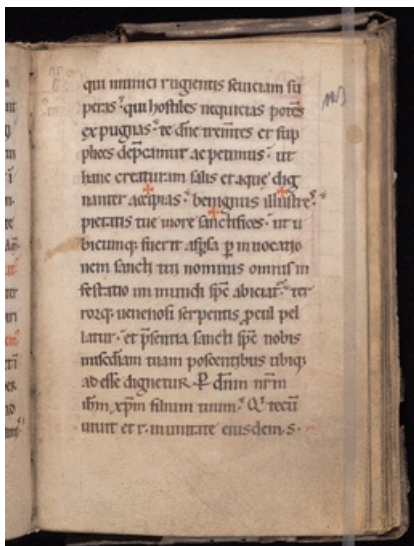 qui inimici rugientis seuiciam su
peras. qui hostiles nequicias potēs
expugnas. te dn̄e trementes et sup
plices dep̄camur ac petimus. ut
hanc creaturam salis et aque dig
nanter accipias. benignus illustres.
pietatis tue more sanctifices. ut u
bicumq; fuerit asp̄sa p̲ inuocatio
nem sancti tui nominis omnis in
festatio inmundi sp̄c abiciat̄. ter
rorq; uenenosi serpentis p̲cul pel
latur. et p̄sentia sancti sp̄c nobis
misc̄diam tuam poscentibus ubiq;
ad esse dignetur. P̲ dn̄m nr̄m
ih̄m xp̄m filium tuum. Q̲ tecū
uiuit et r. in unitate eiusdem. s.